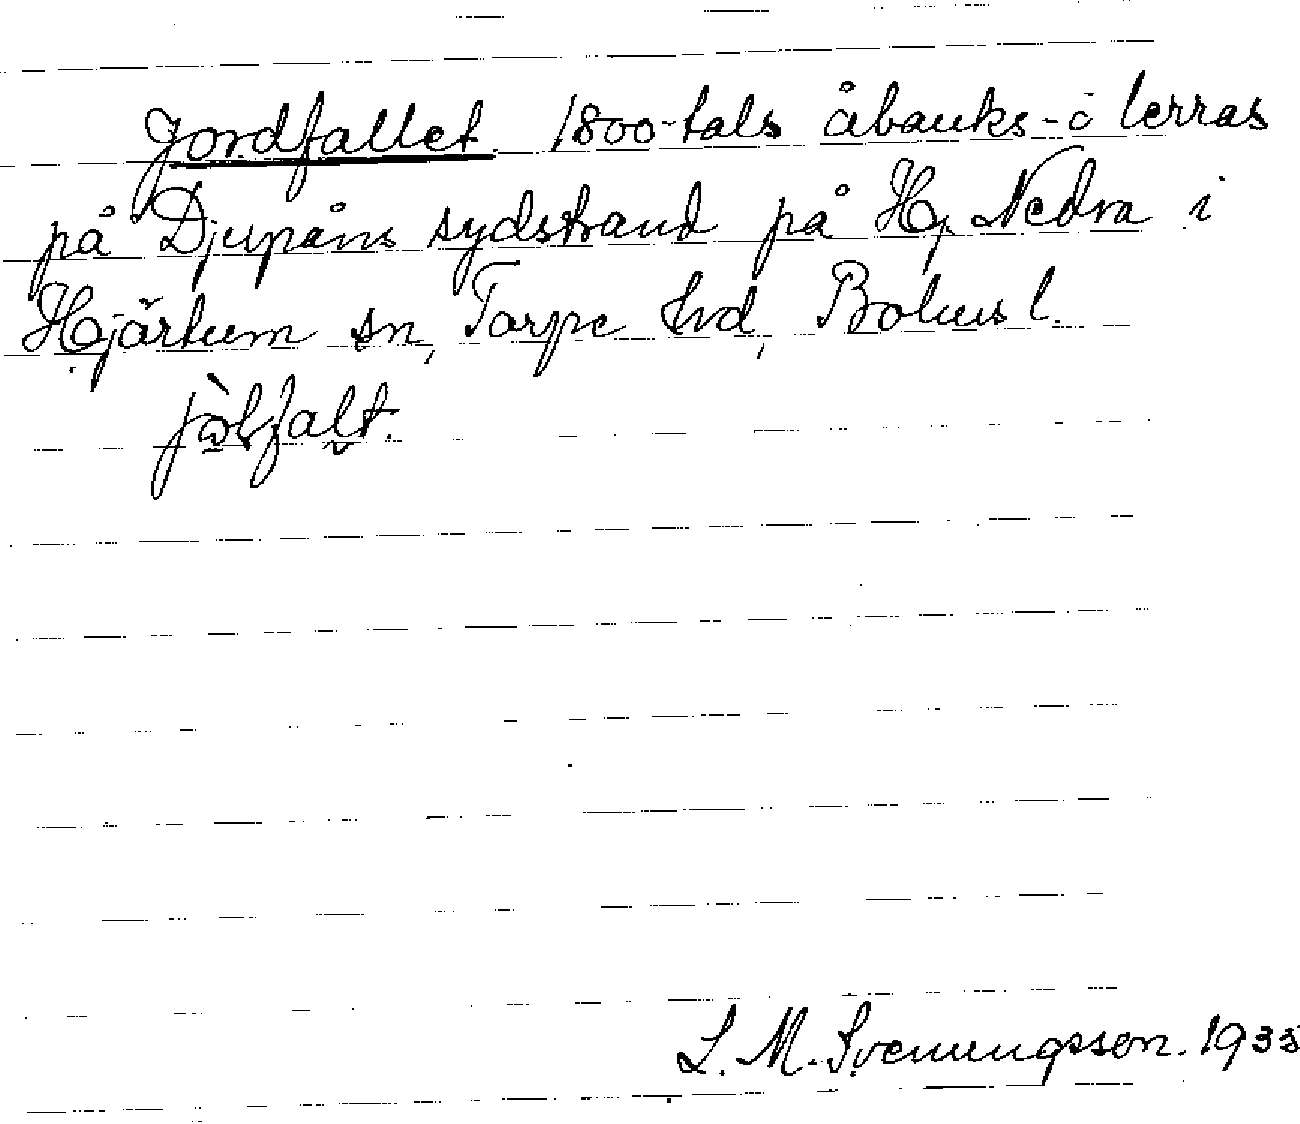 Jordfallet. 1800-tals åbanks-o terras
på Djupåns sydstrand på Hj. Nedra i
Hjärtum sn, Torpe hd, Bohusl.
L. M. Svenungsson. 1935